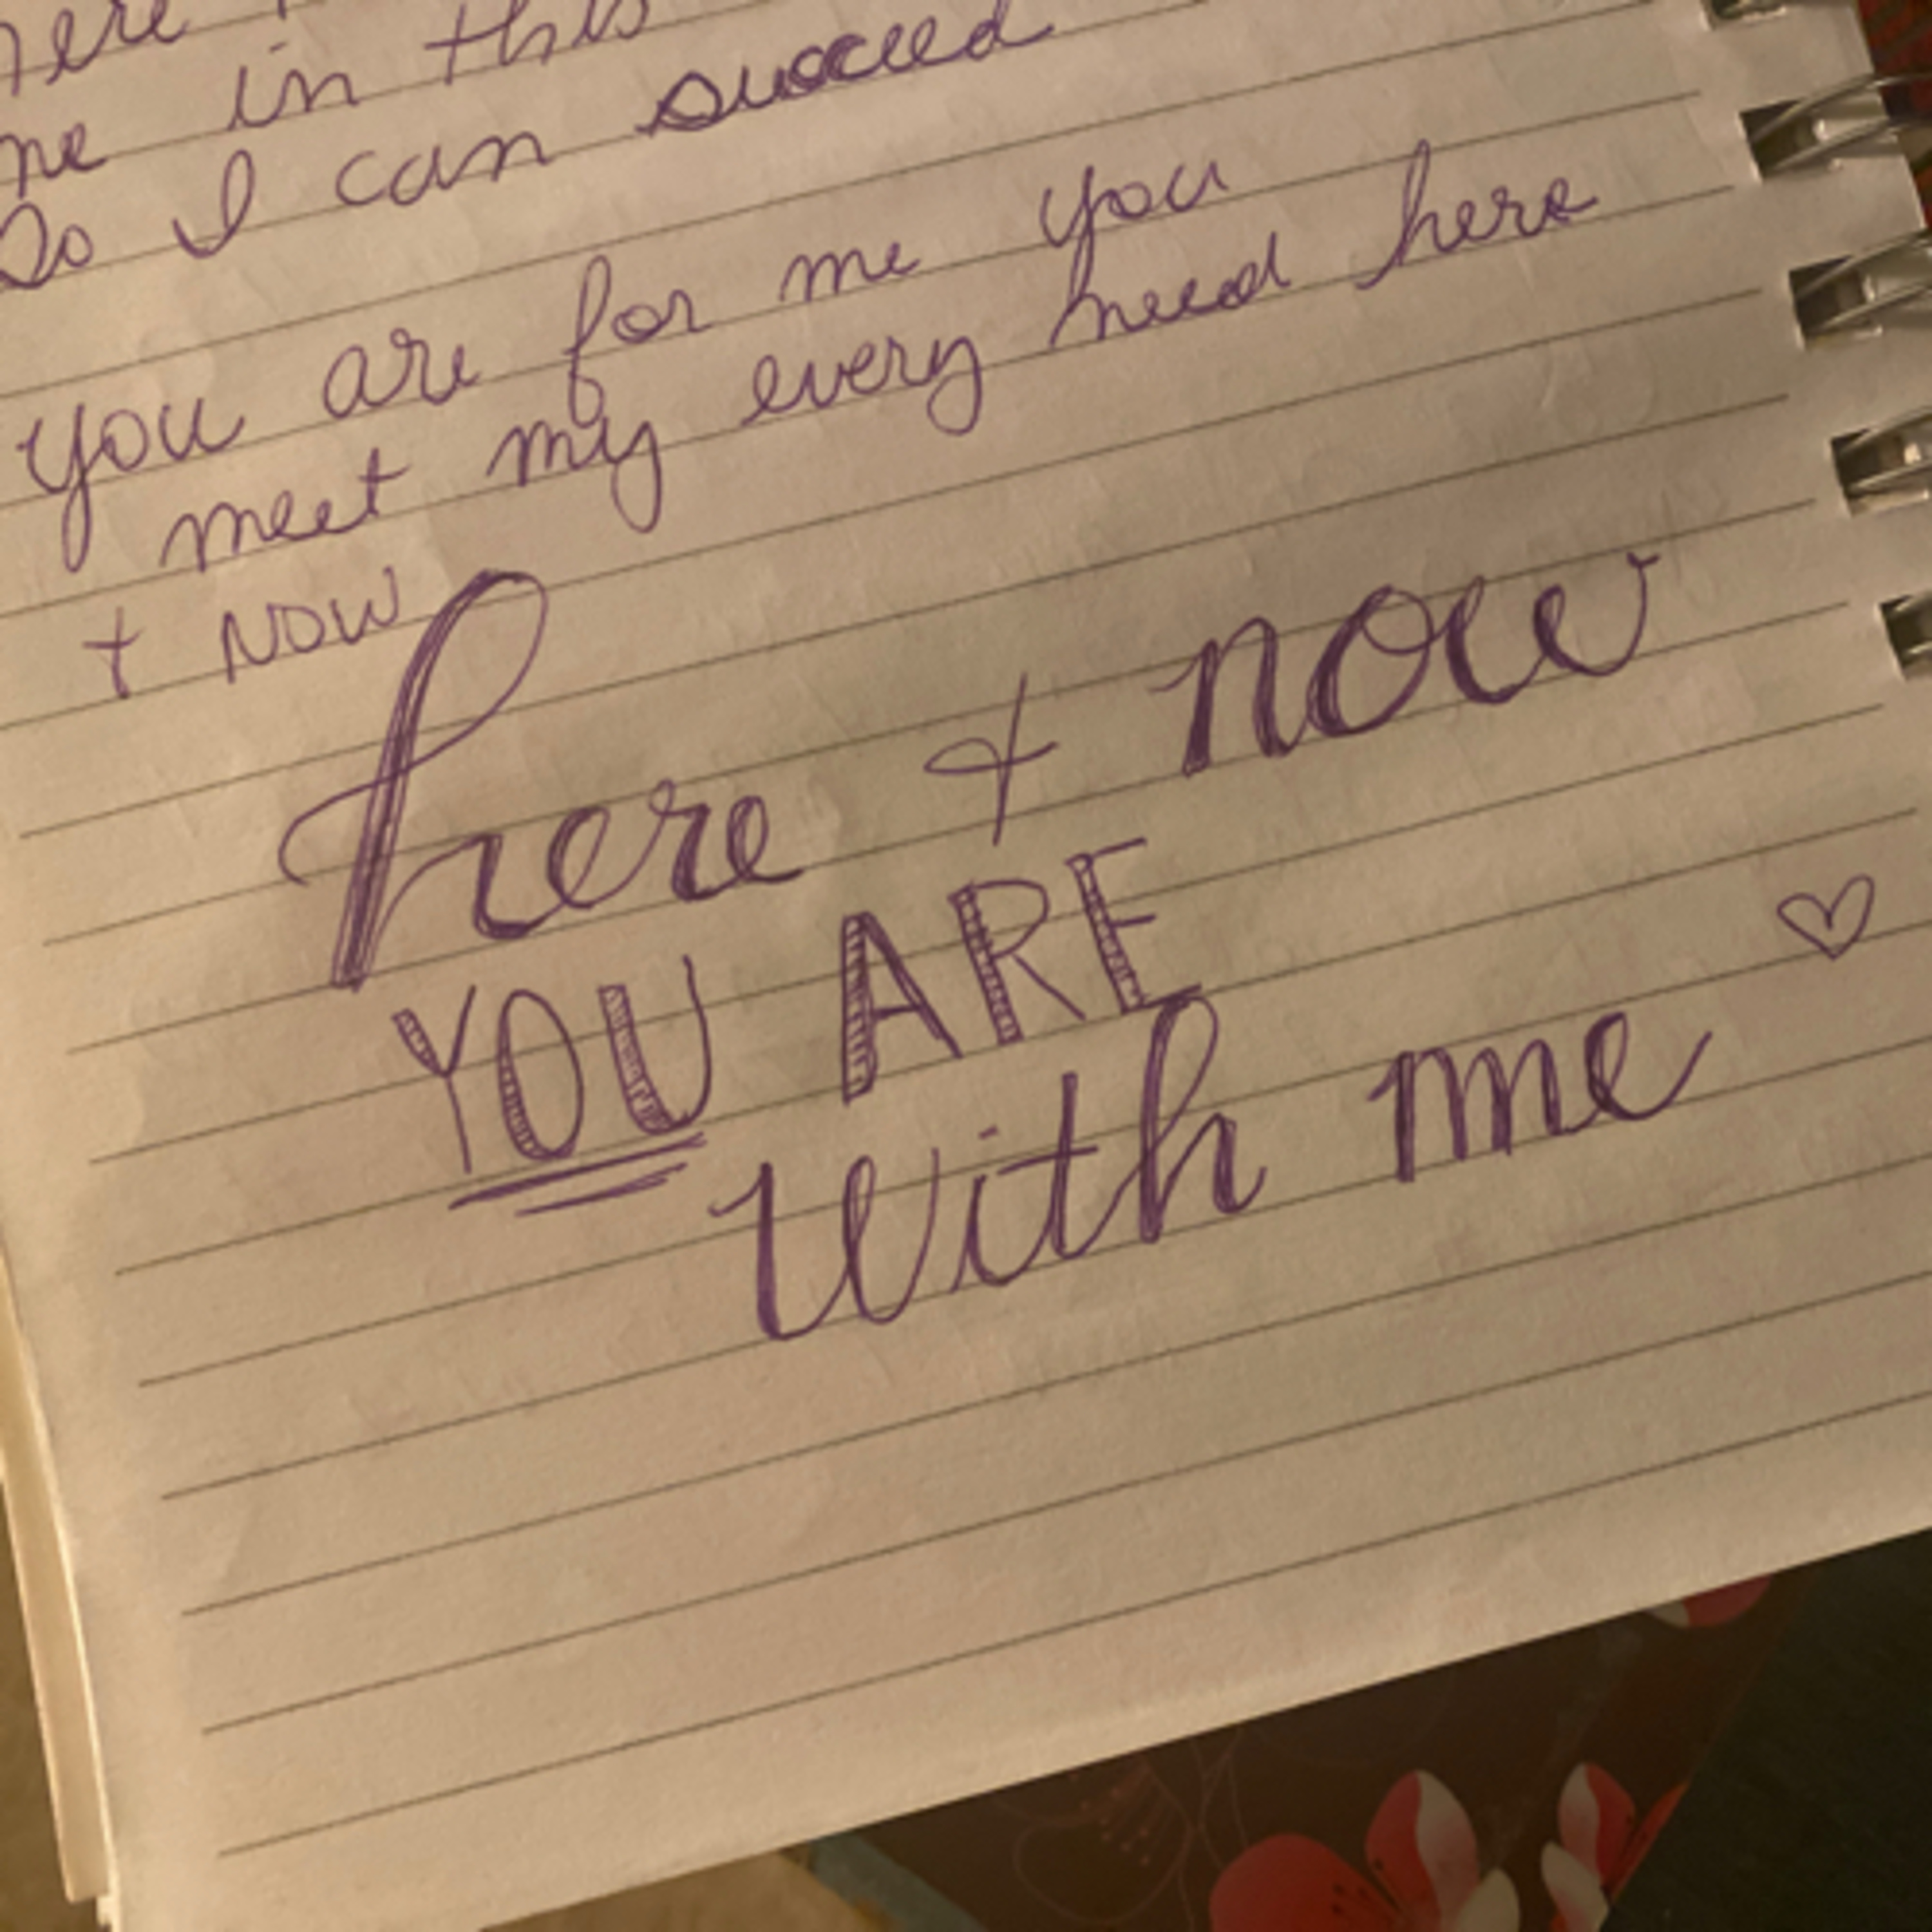 here
me in this
So I can succeed
you are for me you
meet my every need here
+ NOW
here + now
YOU ARE
with me ♡